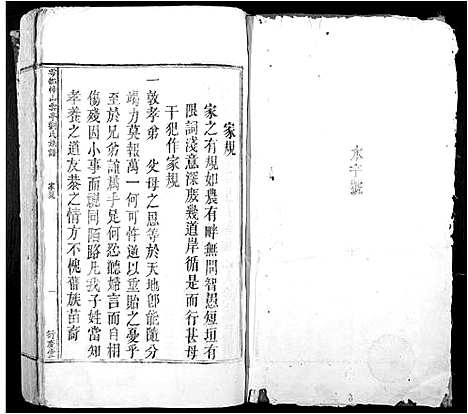 家規
家之有規如農有畔無問智愚短垣有
限詞淺意深庶幾道岸循是而行甚毋
干犯作家規
一敦孝弟 父母之恩等於天地卽能隨分
竭力莫報萬一何可忤逆以重貽之憂乎
至於兄弟誼屬手足何忍聽婦言而自相
傷殘因小事而視同陌路凡我子姓當知
孝養之道友恭之情方不愧舊族苗裔
家規
一